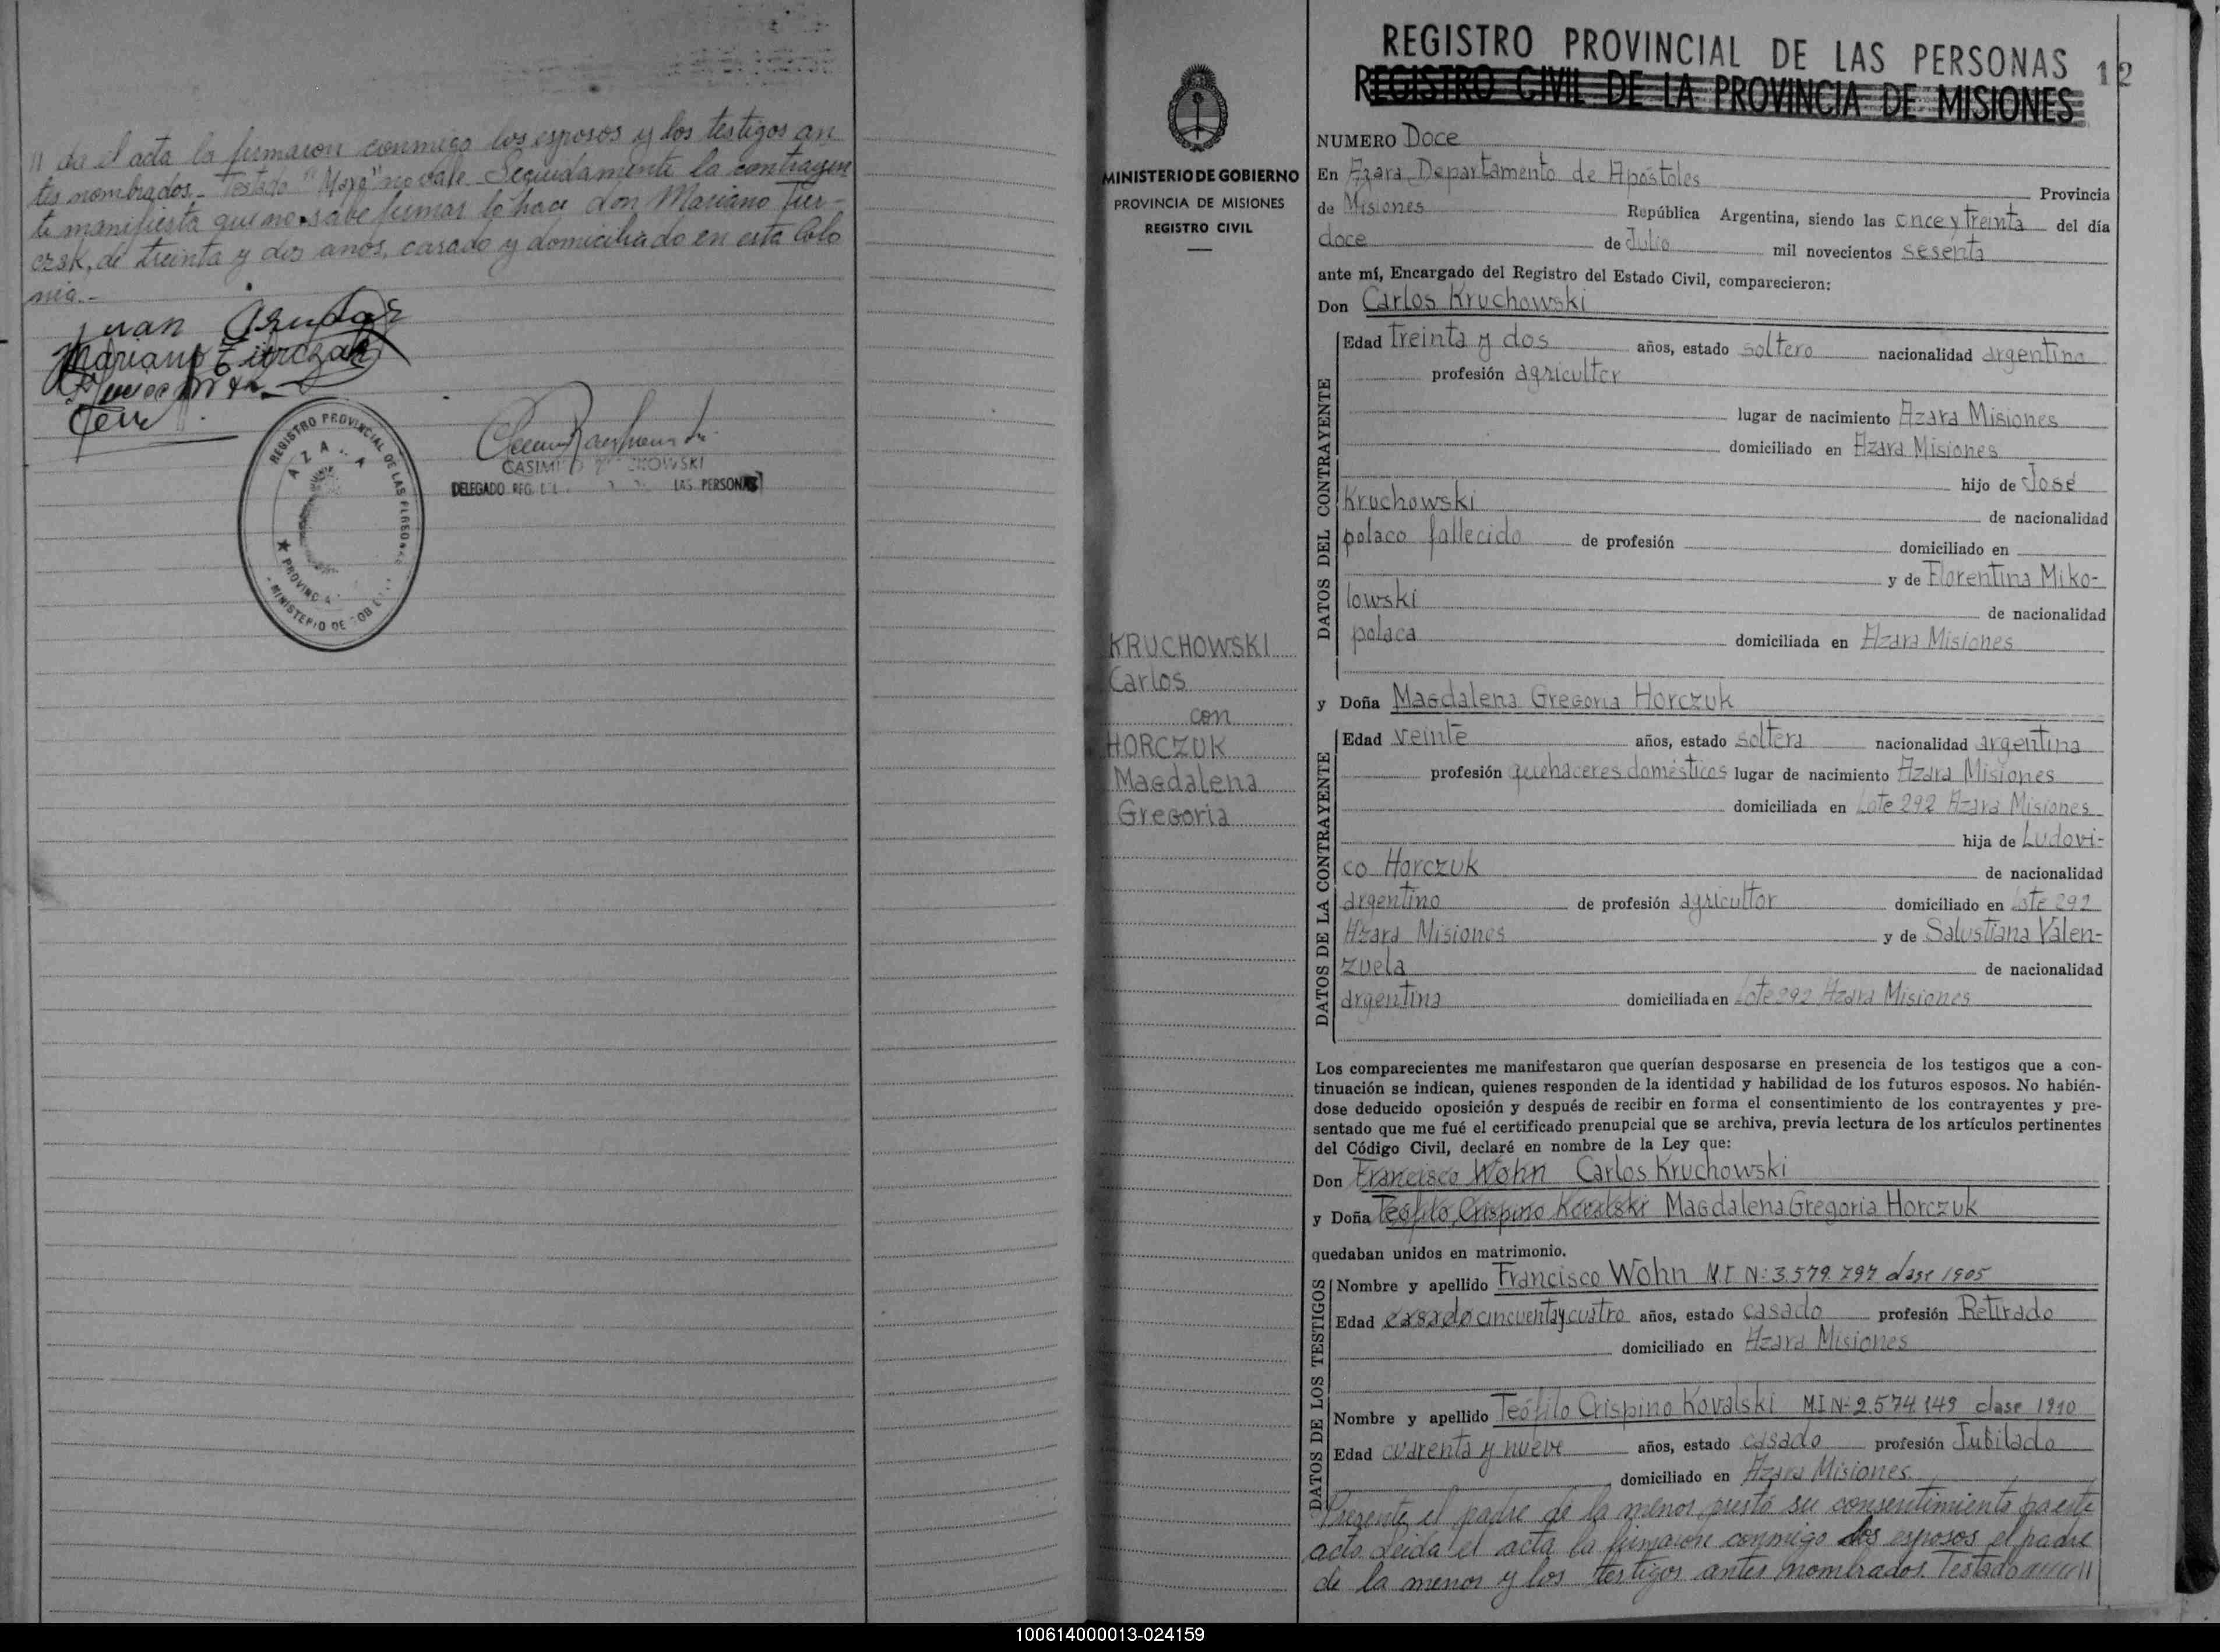 // da el acta la firmaron conmigo los esposos y los testigos an
tes nombrados.- Testado "Mayo" no vale. Seguidamente la contrayen
te manifiesta que no sabe firmar lo hace don Mariano Tur-
czak, de treinta y dos años, casado y domiciliado en esta Colo
nia.-
Juan
Mariano
REGISTRO PROVINCIAL DE LAS PERSONAS
AZARA
CASIMIRO
DELEGADO REG. LAS PERSONAS
MINISTERIO DE GOBIERNO
PROVINCIA DE MISIONES
REGISTRO CIVIL
KRUCHOWSKI
Carlos
con
HORCZUK
Magdalena
Gregoria
REGISTRO PROVINCIAL DE LAS PERSONAS 12
REGISTRO CIVIL DE LA PROVINCIA DE MISIONES
NUMERO Doce
En Azara Departamento de Apóstoles Provincia
de Misiones República Argentina, siendo las once y treinta del día
doce de Julio mil novecientos sesenta
ante mí, Encargado del Registro del Estado Civil, comparecieron:
Don Carlos Kruchowski
DATOS DEL CONTRAYENTE
Edad treinta y dos años, estado soltero nacionalidad argentina
profesión agricultor
lugar de nacimiento Azara Misiones
domiciliado en Azara Misiones
hijo de José
Kruchowski de nacionalidad
polaco fallecido de profesión domiciliado en
y de Florentina Miko-
lowski de nacionalidad
polaca domiciliada en Azara Misiones
y Doña Magdalena Gregoria Horczuk
DATOS DE LA CONTRAYENTE
Edad veinte años, estado soltera nacionalidad argentina
profesión quehaceres domésticos lugar de nacimiento Azara Misiones
domiciliada en Lote 292 Azara Misiones
hija de Ludovi-
co Horczuk de nacionalidad
argentino de profesión agricultor domiciliado en Lote 292
Azara Misiones y de Salustiana Valen-
zuela de nacionalidad
argentina domiciliada en Lote 292 Azara Misiones
Los comparecientes me manifestaron que querían desposarse en presencia de los testigos que a con-
tinuación se indican, quienes responden de la identidad y habilidad de los futuros esposos. No habién-
dose deducido oposición y después de recibir en forma el consentimiento de los contrayentes y pre-
sentado que me fué el certificado prenupcial que se archiva, previa lectura de los artículos pertinentes
del Código Civil, declaré en nombre de la Ley que:
Don Francisco Wohn Carlos Kruchowski
y Doña Teófilo Crispino Kovalski Magdalena Gregoria Horczuk
quedaban unidos en matrimonio.
DATOS DE LOS TESTIGOS
Nombre y apellido Francisco Wohn M.I N: 3.579.797 clase 1905
Edad casado cincuenta y cuatro años, estado casado profesión Retirado
domiciliado en Azara Misiones
Nombre y apellido Teófilo Crispino Kovalski M.I N: 2.574.149 clase 1910
Edad cuarenta y nueve años, estado casado profesión Jubilado
domiciliado en Azara Misiones
Presente el padre de la menor presta su consentimiento pa este
acto. Leida el acta la firmaron conmigo los esposos el padre
de la menor y los testigos antes nombrados. Testado //
100614000013-024159